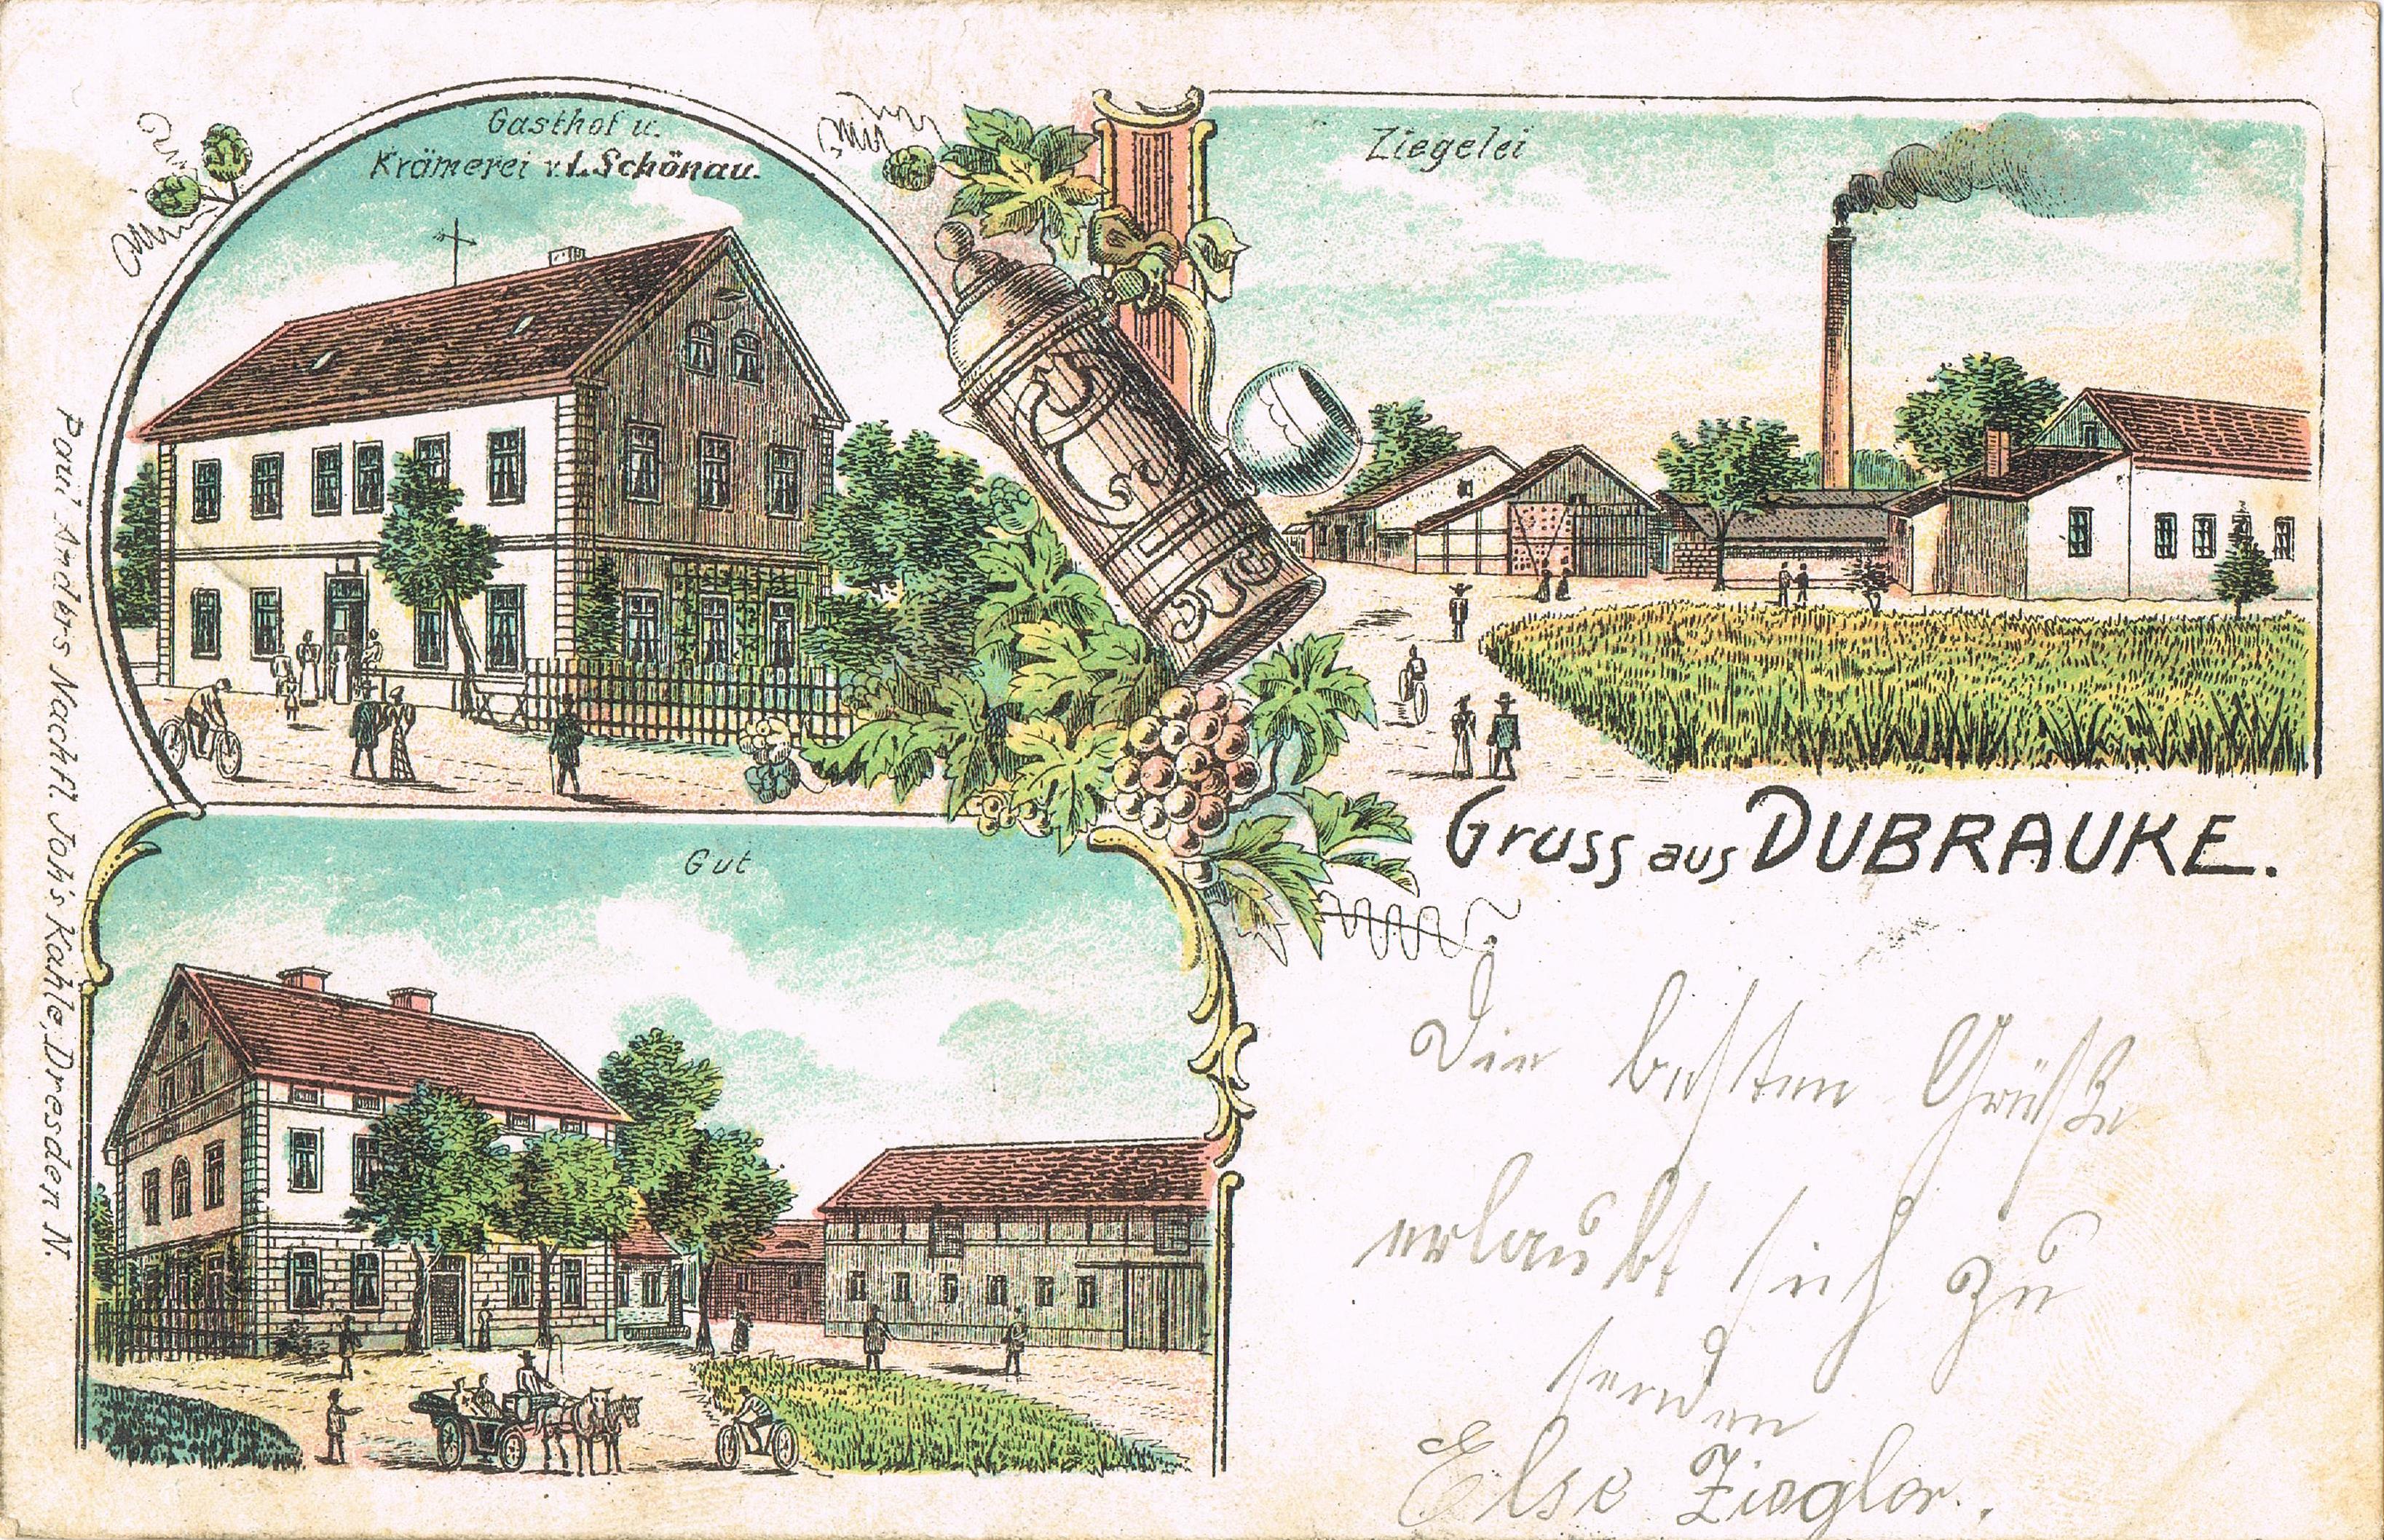 Gasthof u.
Krämerei v. L. Schönau.
Ziegelei
Gruss aus DUBRAUKE.
Gut
Paul Anders Nachfl. Joh's Kahle, Dresden N.
Die besten Grüße
erlaubt sich zu
senden
Else Ziegler.